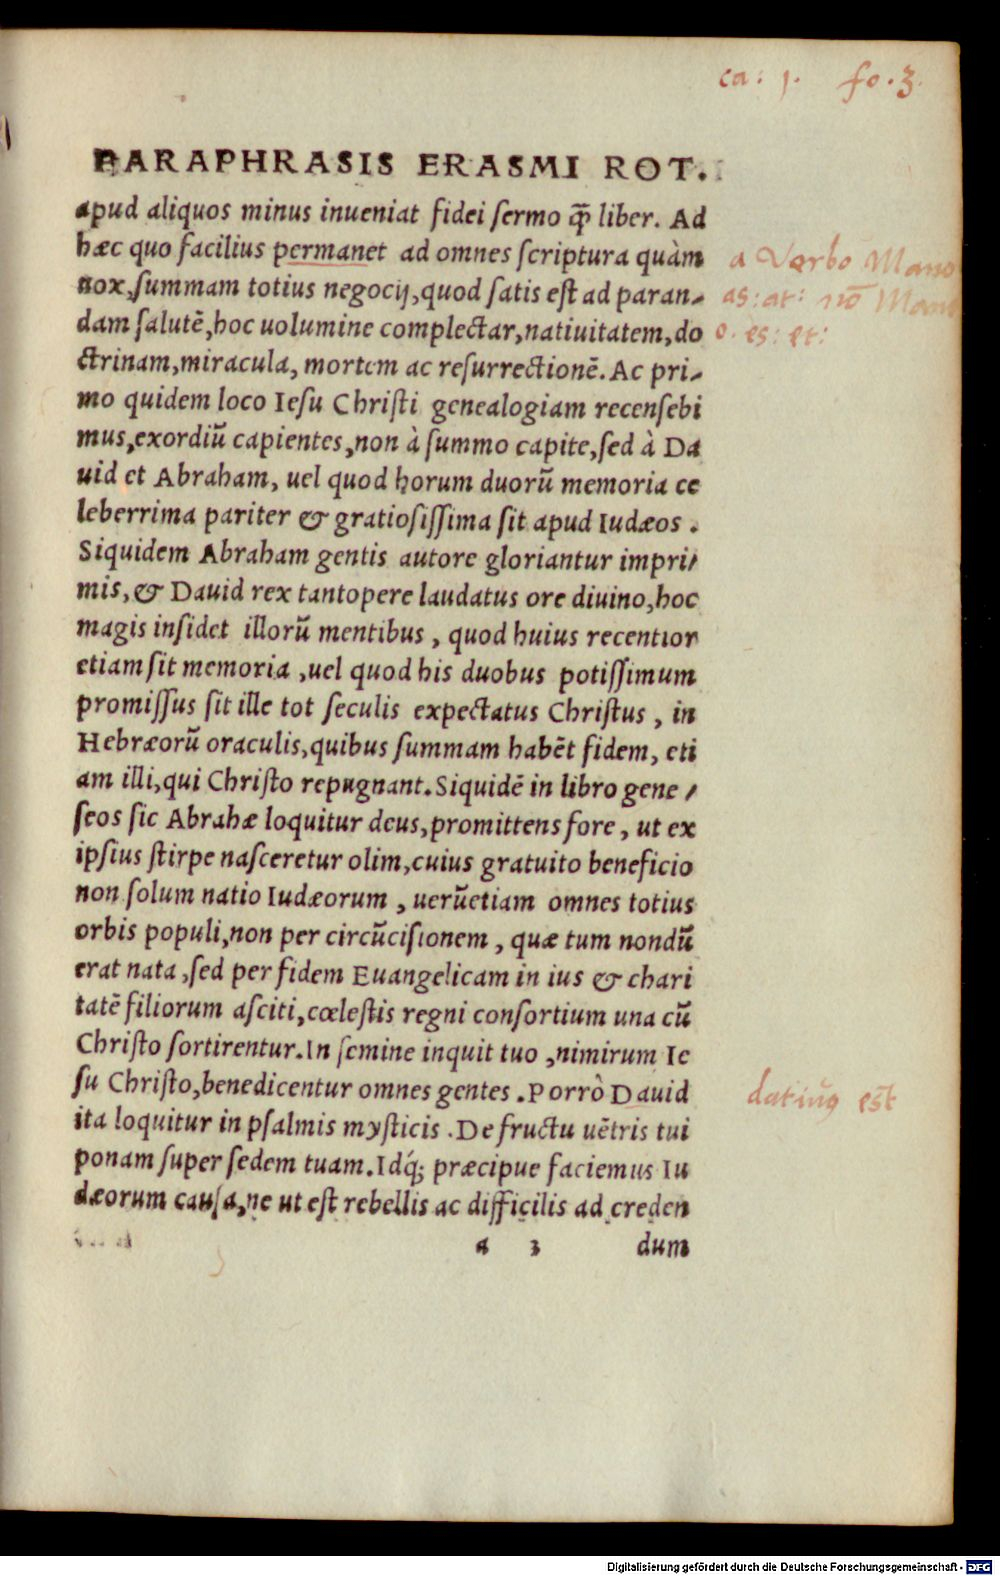 ca: 1. fo. 3.
PARAPHRASIS ERASMI ROT.
apud aliquos minus inueniat fidei sermo q̃ liber. Ad
hæc quo facilius permanet ad omnes scriptura quàm
uox, summam totius negocij, quod satis est ad paran-
dam salutẽ, hoc uolumine complectar, natiuitatem, do
ctrinam, miracula, mortem ac resurrectionẽ. Ac pri-
mo quidem loco Iesu Christi genealogiam recensebi
mus, exordiũ capientes, non à summo capite, sed à Da
uid et Abraham, uel quod horum duorũ memoria ce
leberrima pariter & gratiosissima sit apud Iudæos.
Siquidem Abraham gentis autore gloriantur impri-
mis, & Dauid rex tantopere laudatus ore diuino, hoc
magis insidet illorũ mentibus, quod huius recentior
etiam sit memoria, uel quod his duobus potissimum
promissus sit ille tot seculis expectatus Christus, in
Hebræorũ oraculis, quibus summam habẽt fidem, eti
am illi, qui Christo repugnant. Siquidẽ in libro gene-
seos sic Abrahæ loquitur deus, promittens fore, ut ex
ipsius stirpe nasceretur olim, cuius gratuito beneficio
non solum natio Iudæorum, uerũetiam omnes totius
orbis populi, non per circũcisionem, quæ tum nondũ
erat nata, sed per fidem Euangelicam in ius & chari
tatẽ filiorum asciti, cœlestis regni consortium una cũ
Christo sortirentur. In semine inquit tuo, nimirum Ie
su Christo, benedicentur omnes gentes. Porrò Dauid
ita loquitur in psalmis mysticis. De fructu uẽtris tui
ponam super sedem tuam. Idq́; præcipue faciemus Iu
dæorum causa, ne ut est rebellis ac difficilis ad creden
a 3 dum
a Verbo Mano
as: at: nõ Mane
o. es: et:
datiuꝰ est
Digitalisierung gefördert durch die Deutsche Forschungsgemeinschaft - DFG